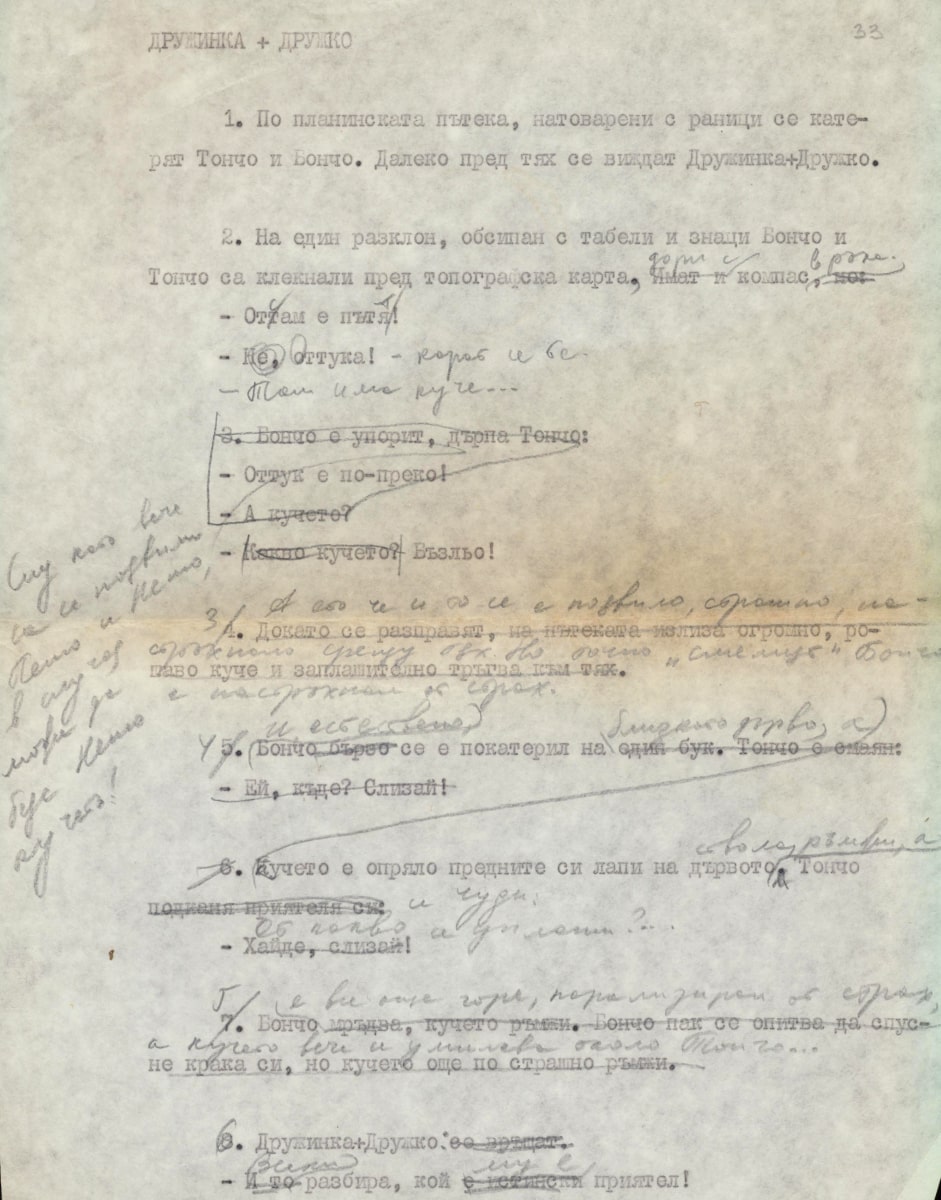 33
ДРУЖИНКА + ДРУЖКО
1. По планинската пътека, натоварени с раници се кате-
рят Тончо и Бончо. Далеко пред тях се виждат Дружинка+Дружко.
2. На един разклон, обсипан с табели и знаци Бончо и
дори с в ръка.
Тончо са клекнали пред топографска карта, Имат и компас, но:
- Оттам е пътя!
- Не, оттука! -
- Там има куче...
3. Бончо е упорит, дърпа Тончо:
- Оттук е по-преко!
- А кучето?
- Какво кучето? Бъзльо!
След като вече
са се подвили
Пешо и Нешо,
в след. год
може да
бъде Нешо
кучето!
3/ А ето че и то се е появило, страшно, на-
4. Докато се разправят, на пътеката излиза огромно, ро-
стръхнало срещу тях. Но "смелият" Бончо
шаво куче и заплашително тръгва към тях.
е настръхнал от страх.
И естествено близкото дърво, а
4/ 5. Бончо бързо се е покатерил на един бук. Тончо е смаян:
- Ей, къде? Слизай!
ствола, ръмжи, а
6. Кучето е опряло предните си лапи на дървото. Тончо
подканя приятеля си:
се чуди:
От какво се уплаши?...
- Хайде, слизай!
5/ е все още горе, парализиран от страх,
7. Бончо мръдва, кучето ръмжи. Бончо пак се опитва да спус-
а кучето вече се умилква около Тончо...
не крака си, но кучето още по страшно ръмжи.
6
8. Дружинка+Дружко: се връщат.
Вики му е
- И то разбира, кой е истински приятел!